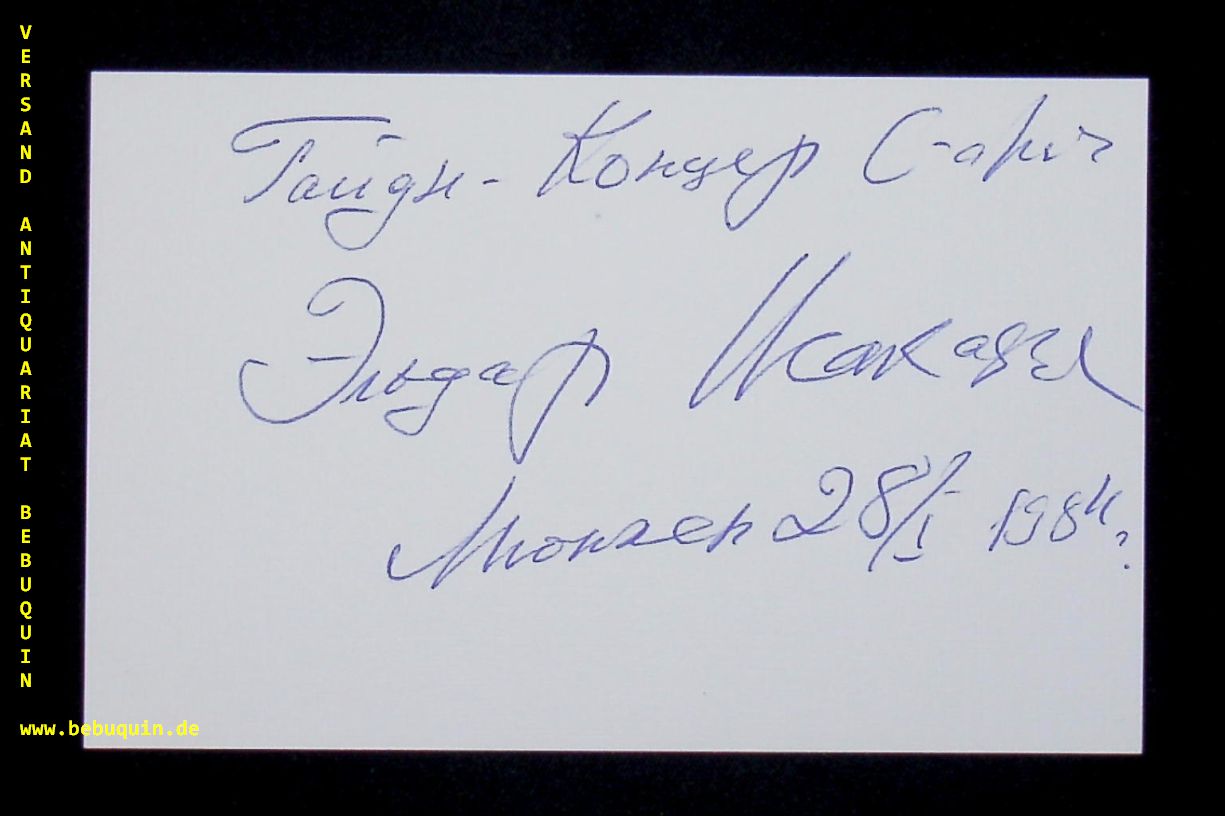 VERSAND ANTIQUARIAT BEBUQUIN
www.bebuquin.de
Гайдн - Концер C-
Эльдар Исакадзе
Мюнхен 28/I 1984